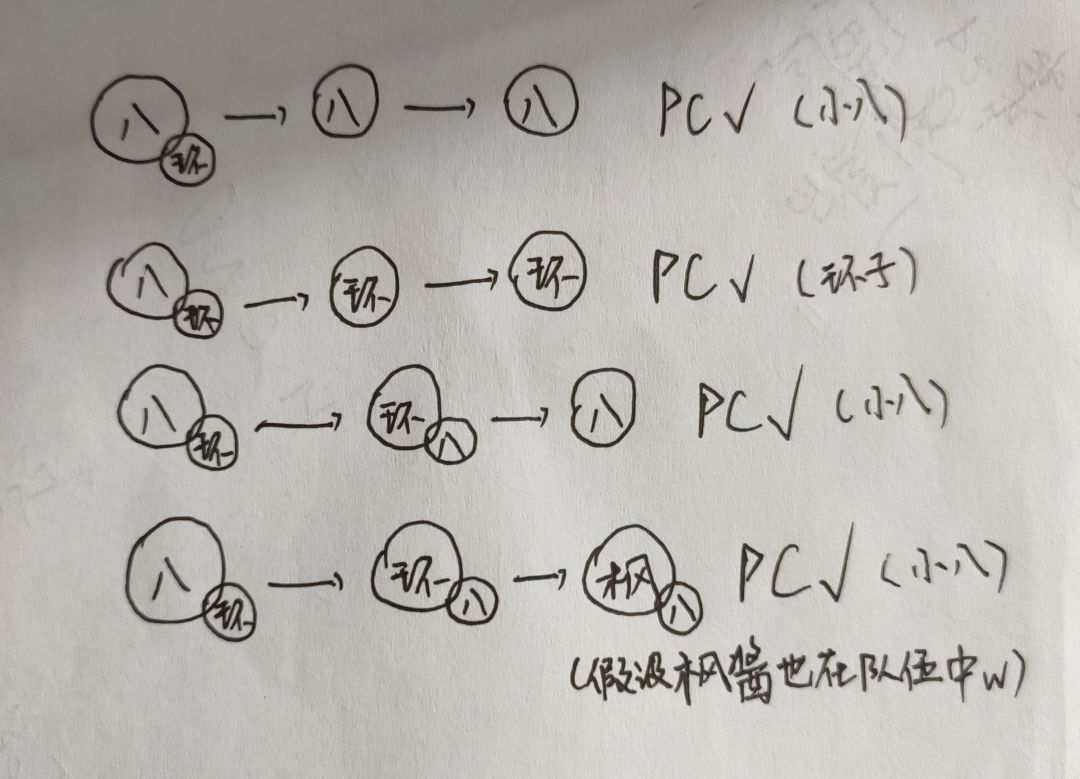 八 环 → 八 → 八 PC√ (小八)
八 环 → 环 → 环 PC√ (环子)
八 环 → 环 八 → 八 PC√ (小八)
八 环 → 环 八 → 枫 八 PC√ (小八)
(假设枫酱也在队伍中w)